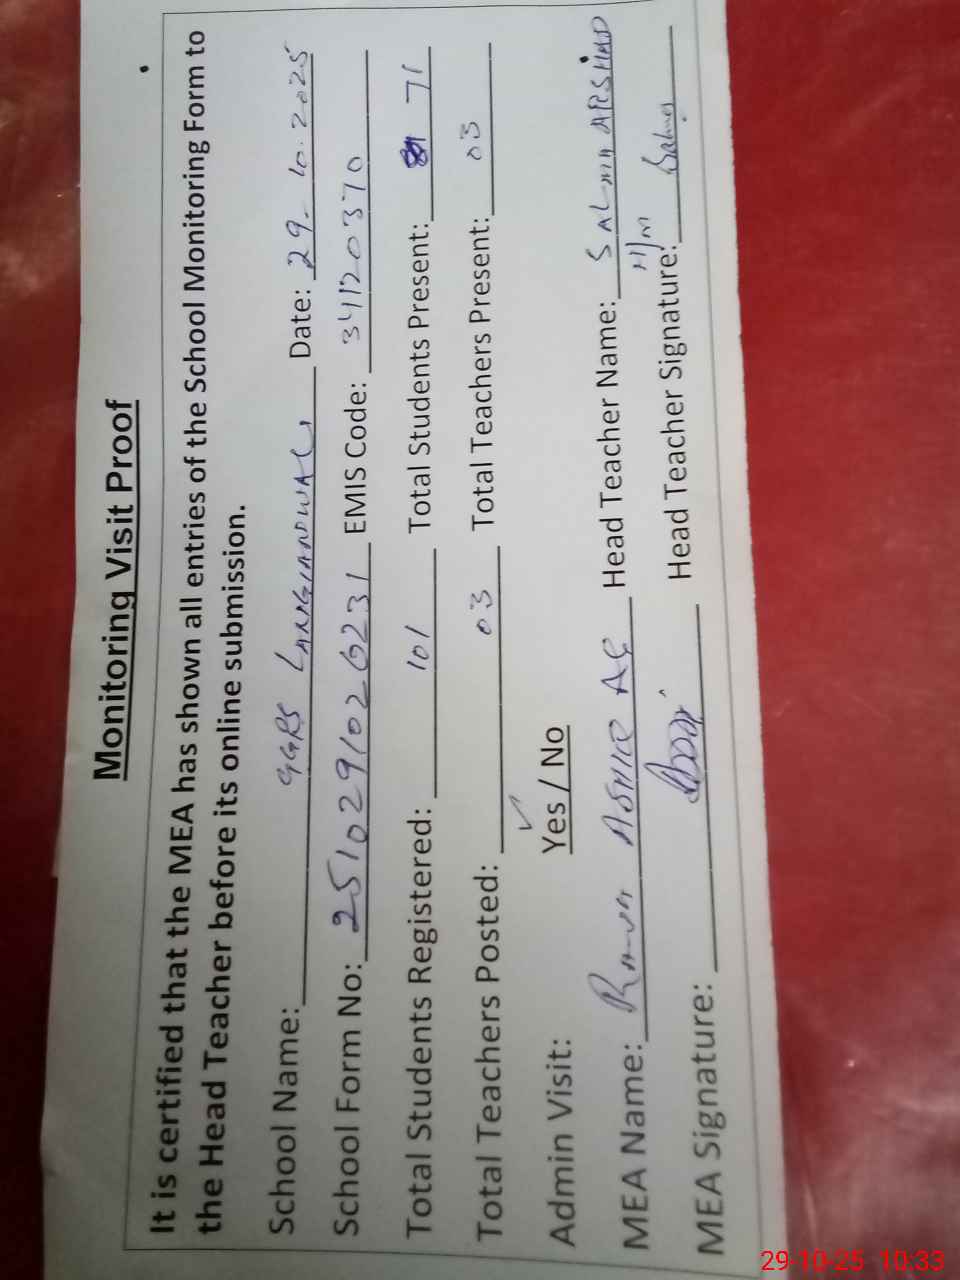 Monitoring Visit Proof
It is certified that the MEA has shown all entries of the School Monitoring Form to
the Head Teacher before its online submission.
School Name: GGPS LANGIANWALI Date: 29-10-2025
School Form No: 2510291026231 EMIS Code: 34120370
Total Students Registered: 101 Total Students Present: 71
Total Teachers Posted: 03 Total Teachers Present: 03
Admin Visit: Yes / No
MEA Name: Head Teacher Name: SALMA ARSHAD
H/M
MEA Signature: Head Teacher Signature: Salma
29-10-25 10:33